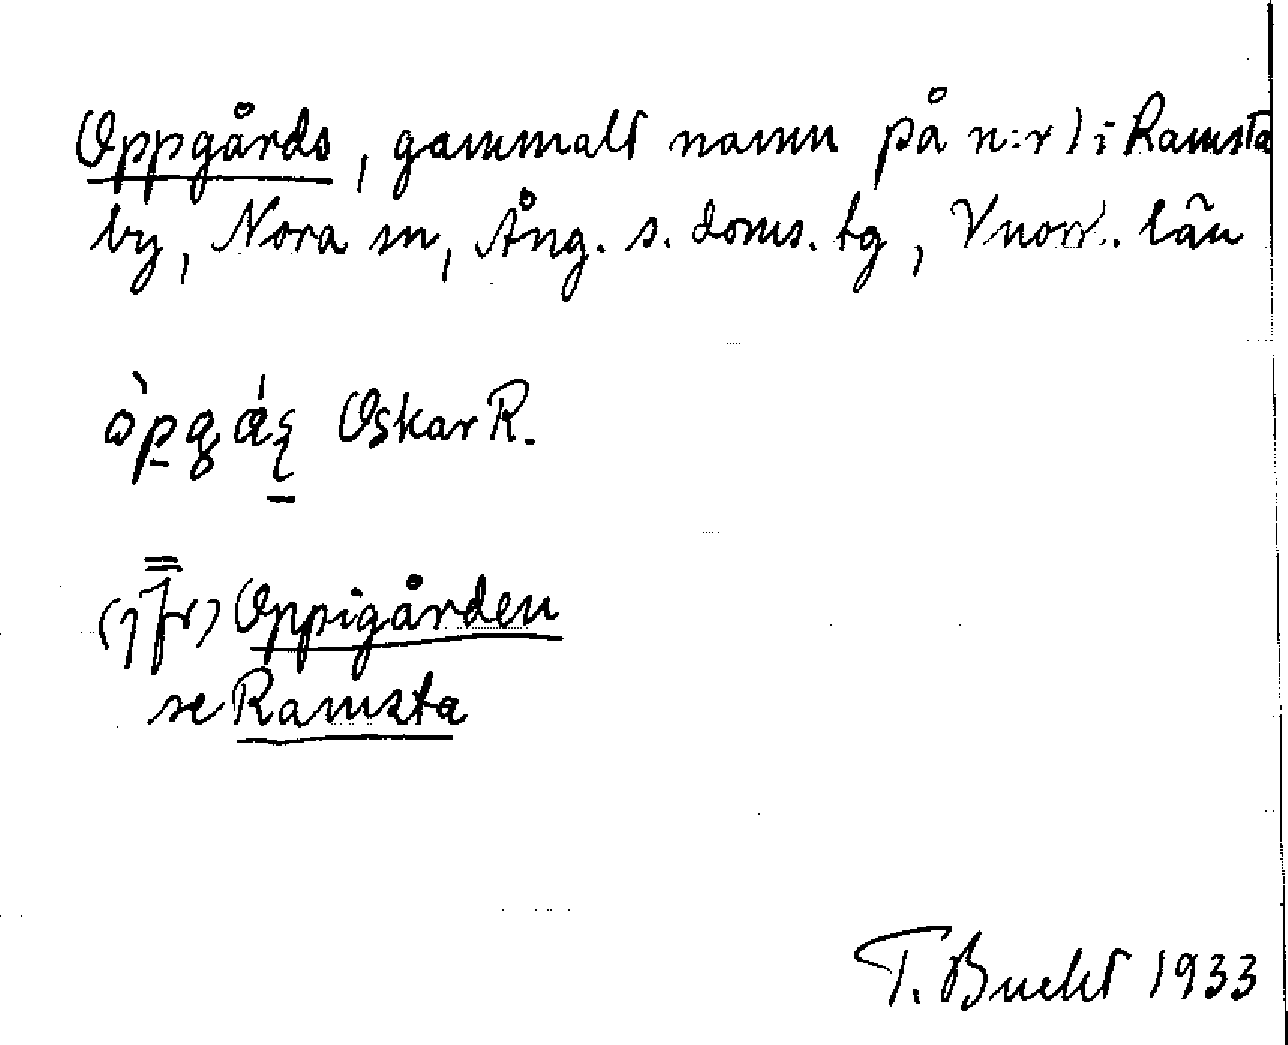 Oppgårds, gammalt namn på n:r 1 i Ramsta
by, Nora sn, Ång. s. doms. tg, Vnorrl. län
òpgáş Oskar R.
(jfr) Oppigården
se Ramsta
T. Bucht 1933